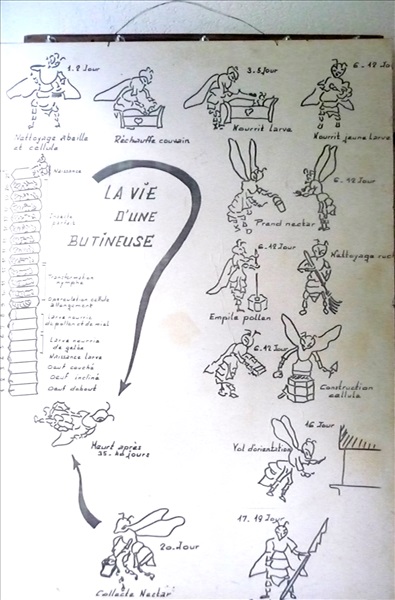 1.2 Jour
3.5 Jour
6-12 Jour
Nettoyage abeille
et cellule
Réchauffe couvain
Nourrit larve
Nourrit jeune larve
Naissance
LA VIE
D'UNE
BUTINEUSE
6-12 Jour
Prend nectar
Insecte
parfait
6-12 Jour
Nettoyage
Transformation
nymphe
Operculation cellule
Allongement
Larve nourrie
de pollen et de miel
Empile pollen
Larve nourrie
de gelée
Naissance larve
Oeuf couché
Oeuf incliné
Oeuf debout
6.12 Jour
Construction
cellule
Meurt après
35. jours
16 Jour
Vol d'orientation
20. Jour
17.19 Jour
Collecte Nectar